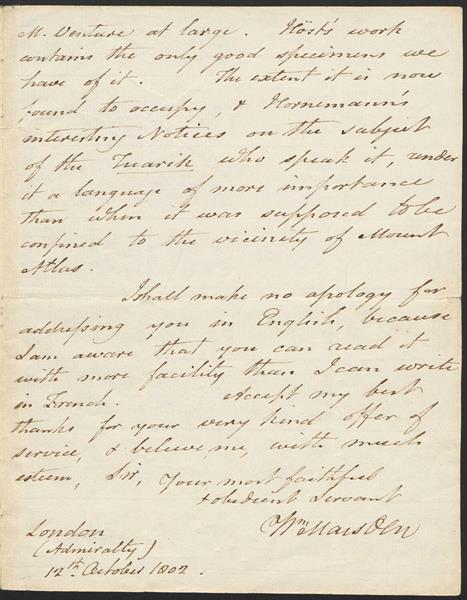 M. Venture at large. Höst's work
contains the only good specimens we
have of it. The extent it is now
found to occupy, & Hornemann's
interesting Notices on the subject
of the Tuarik who speak it, render
it a language of more importance
than when it was supposed to be
confined to the vicinity of Mount
Atlas.
I shall make no apology for
addressing you in English, because
I am aware that you can read it
with more facility than I can write
in French. Accept my best
thanks for your very kind offer of
service, & believe me, with much
esteem, Sir, Your most faithful
& obedient Servant
Wm Marsden
London
(Admiralty)
12th October 1802.